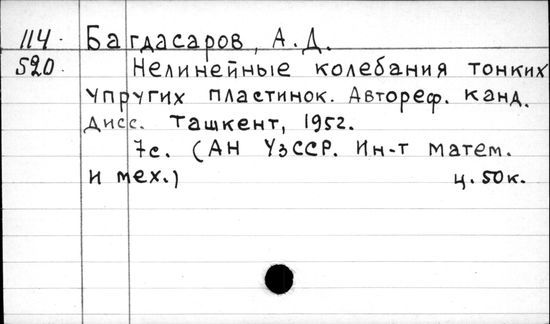 114. Багдасаров, А.Д.
520. Нелинейные колебания тонких
упругих пластинок. Автореф. канд.
дисс. Ташкент, 1952.
7с. (АН УзССР. Ин-т матем.
и мех.) ц. 50к.